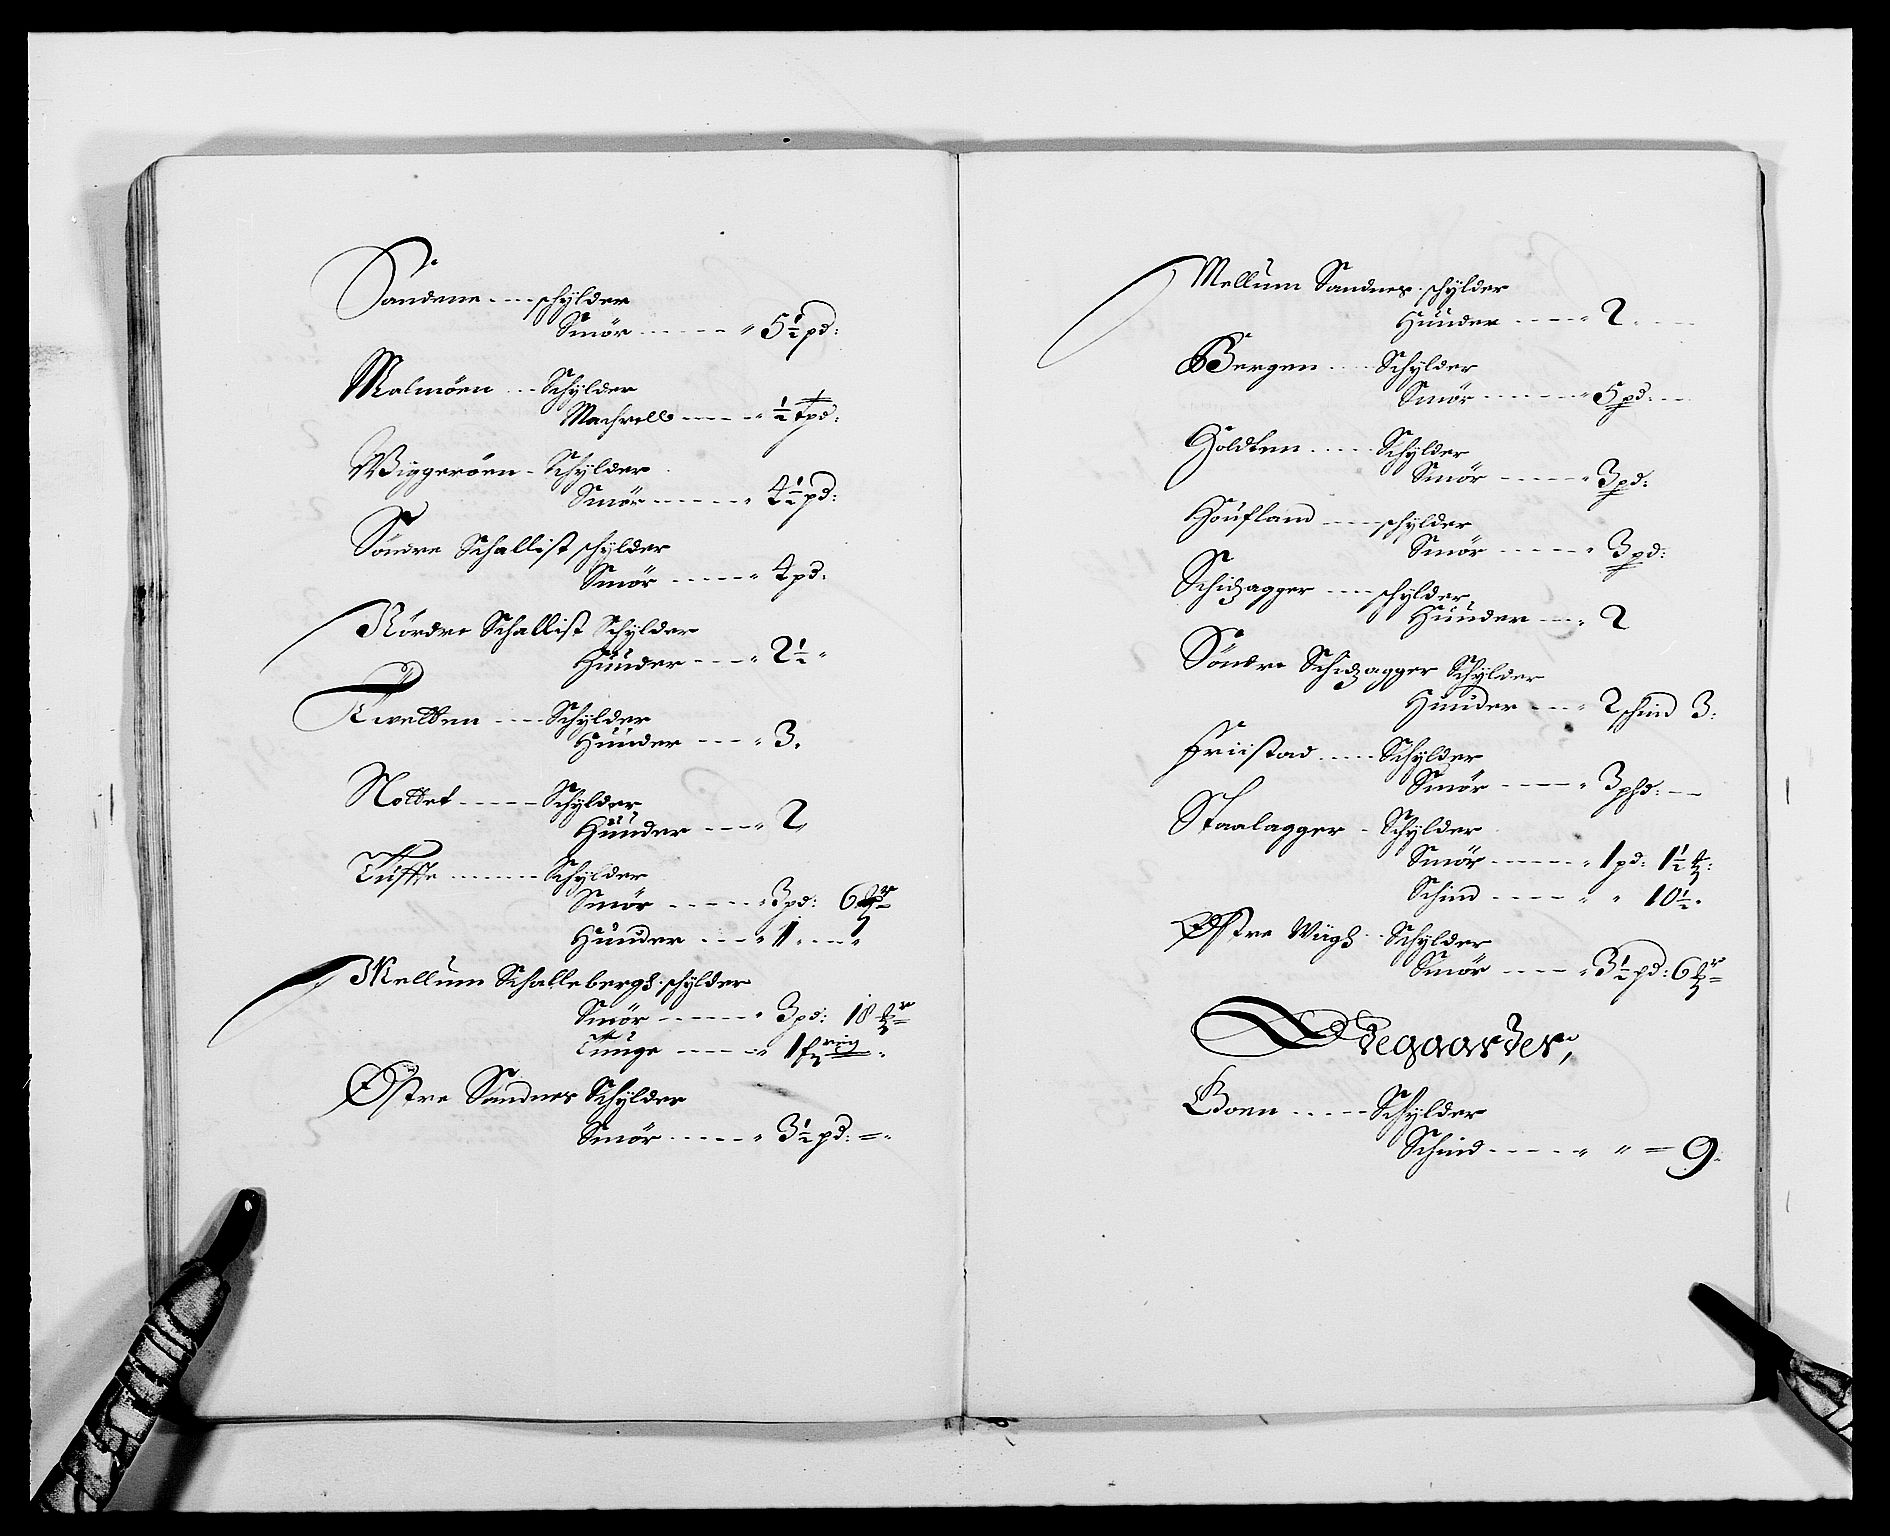 Sandene ---- schylder
Smör ------ " 5½ pd:
Malmöen --- Schylder
Machrell ----- " ½ tpd:
Wiggeröen - Schylder
Smör ------ " 4½ pd:
Söndre Schallist schylder
Smör ----- " 4 pd:
Nördre Schallist Schylder
Hunder ---- " 2½ "
Tvetten ---- Schylder
Hunder ---- " 3.
Nottet ----- Schylder
Hunder ---- " 2
Tuffte ------ Schylder
Smör ----- " 3 pd: 6
Hunder ---- " 1 ---- "
Mellum Schallebergh schylder
Smör ------ " 3 pd: 18
Tunge ----- " 1
Östre Sandnes Schylder
Smör ------ " 3½ pd: = "
Mellum Sandnes schylder
Hunder ----- " 2 . ---
Bergen ---- Schylder
Smör ------- " 5 pd: ---
Holdten ----- Schylder
Smör ------ " 3 pd:
Houfland ---- schylder
Smör ------ " 3 pd:
Schizagger ---- schylder
Hunder ---- " 2
Söndre Schizagger Schylder
Hunder ---- " 2 schind 3:
Friistad ----- Schylder
Smör ----- " 3 phd: ---
Staalagger - Schylder
Smör ------ " 1 pd: 1½
Schind ----- " " 10½.
Östre Wügh -- Schylder
Smör ----- " 3½ pd: 6
Ödegaarder,
Boen ----- Schylder
Schind ------ " " = 9: